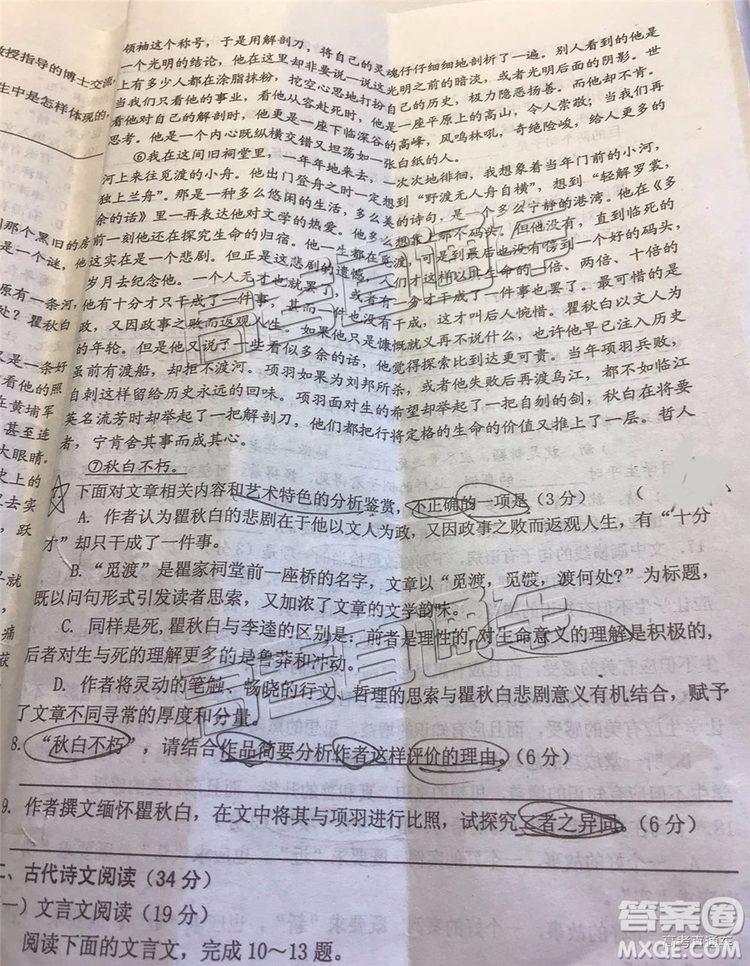 领袖这个称号，于是用解剖刀，将自己的灵魂仔仔细细地剖析了一遍。别人看到的他是
一个光明的结论，他在这里却非要说一说这光明之前的暗淡，或者光明后面的阴影。世
上有多少人都在涂脂抹粉，挖空心思地打扮自己的历史，极力隐恶扬善。而他这样做，
当我们只看他的事业，看他从容赴死时，他是一座平原上的高山，令人崇敬；当我们再
看他对自己的解剖时，他更是一座下临深谷的高峰，风鸣林吼，奇绝险峻，给人更多的
思考。他是一个内心既纵横交错又坦荡如一张白纸的人。
⑥我在这间旧祠堂里，一年年地来去，一次次地徘徊，我想象着当年门前的小河，
河上来往觅渡的小舟。他出门登舟之时一定想到“野渡无人舟自横”，想到“轻解罗裳，
独上兰舟”。那是一种多么悠闲的生活，多么美的诗句，是一个多么宁静的港湾。他在《多
余的话》里一再表达他对文学的热爱。他多么想靠上那个码头。但他没有，直到临死的
前一刻他还在探究生命的归宿。他一生都在觅渡，可是到最后也没有傍到一个好的码头，
这实在是一个悲剧。但正是这悲剧的遗憾，人们才这样以其生命的一倍、两倍、十倍的
岁月去纪念他。一个人无才也就罢了，或者有一分才干成了一件事也罢了。最可惜的是
他有十分才只干成了一件事，甚而一件也没有干成，这才叫后人惋惜。瞿秋白以文人为
政，又因政事之败而返观人生。如果他只是慷慨就义再不说什么，也许他早已没入历史
的年轮。但他又说了一些看似多余的话，他觉得探索比到达更可贵。当年项羽兵败，
虽前有渡船，却拒不渡河。项羽如果为刘邦所杀，或者他失败后再渡乌江，都不如临江
自刎这样留给历史永远的回味。项羽面对生的希望却举起了一把自刎的剑，秋白在将要
英名流芳时却举起了一把解剖刀，他们都将行将定格的生命的价值又推上了一层。哲人
者，宁肯舍其事而成其心。
⑦秋白不朽。
教授指导的博士交流，
生中是怎样体现的，
下面对文章相关内容和艺术特色的分析鉴赏，不正确的一项是（3 分） （
A. 作者认为瞿秋白的悲剧在于他以文人为政，又因政事之败而返观人生，有“十分
才”却只干成了一件事。
B. “觅渡”是瞿家祠堂前一座桥的名字，文章以“觅渡，觅渡，渡何处？”为标题，
既以问句形式引发读者思索，又加浓了文章的文学韵味。
C. 同样是死，瞿秋白与李逵的区别是：前者是理性的，对生命意义的理解是积极的，
后者对生与死的理解更多的是鲁莽和冲动。
D. 作者将灵动的笔触、畅晓的行文、哲理的思索与瞿秋白悲剧意义有机结合，赋予
了文章不同寻常的厚度和分量。
8. “秋白不朽”，请结合作品简要分析作者这样评价的理由。（6 分）
9. 作者撰文缅怀瞿秋白，在文中将其与项羽进行比照，试探究二者之异同。（6 分）
二、古代诗文阅读（34 分）
一）文言文阅读（19 分）
阅读下面的文言文，完成 10～13 题。
答案圈
MXQE.COM